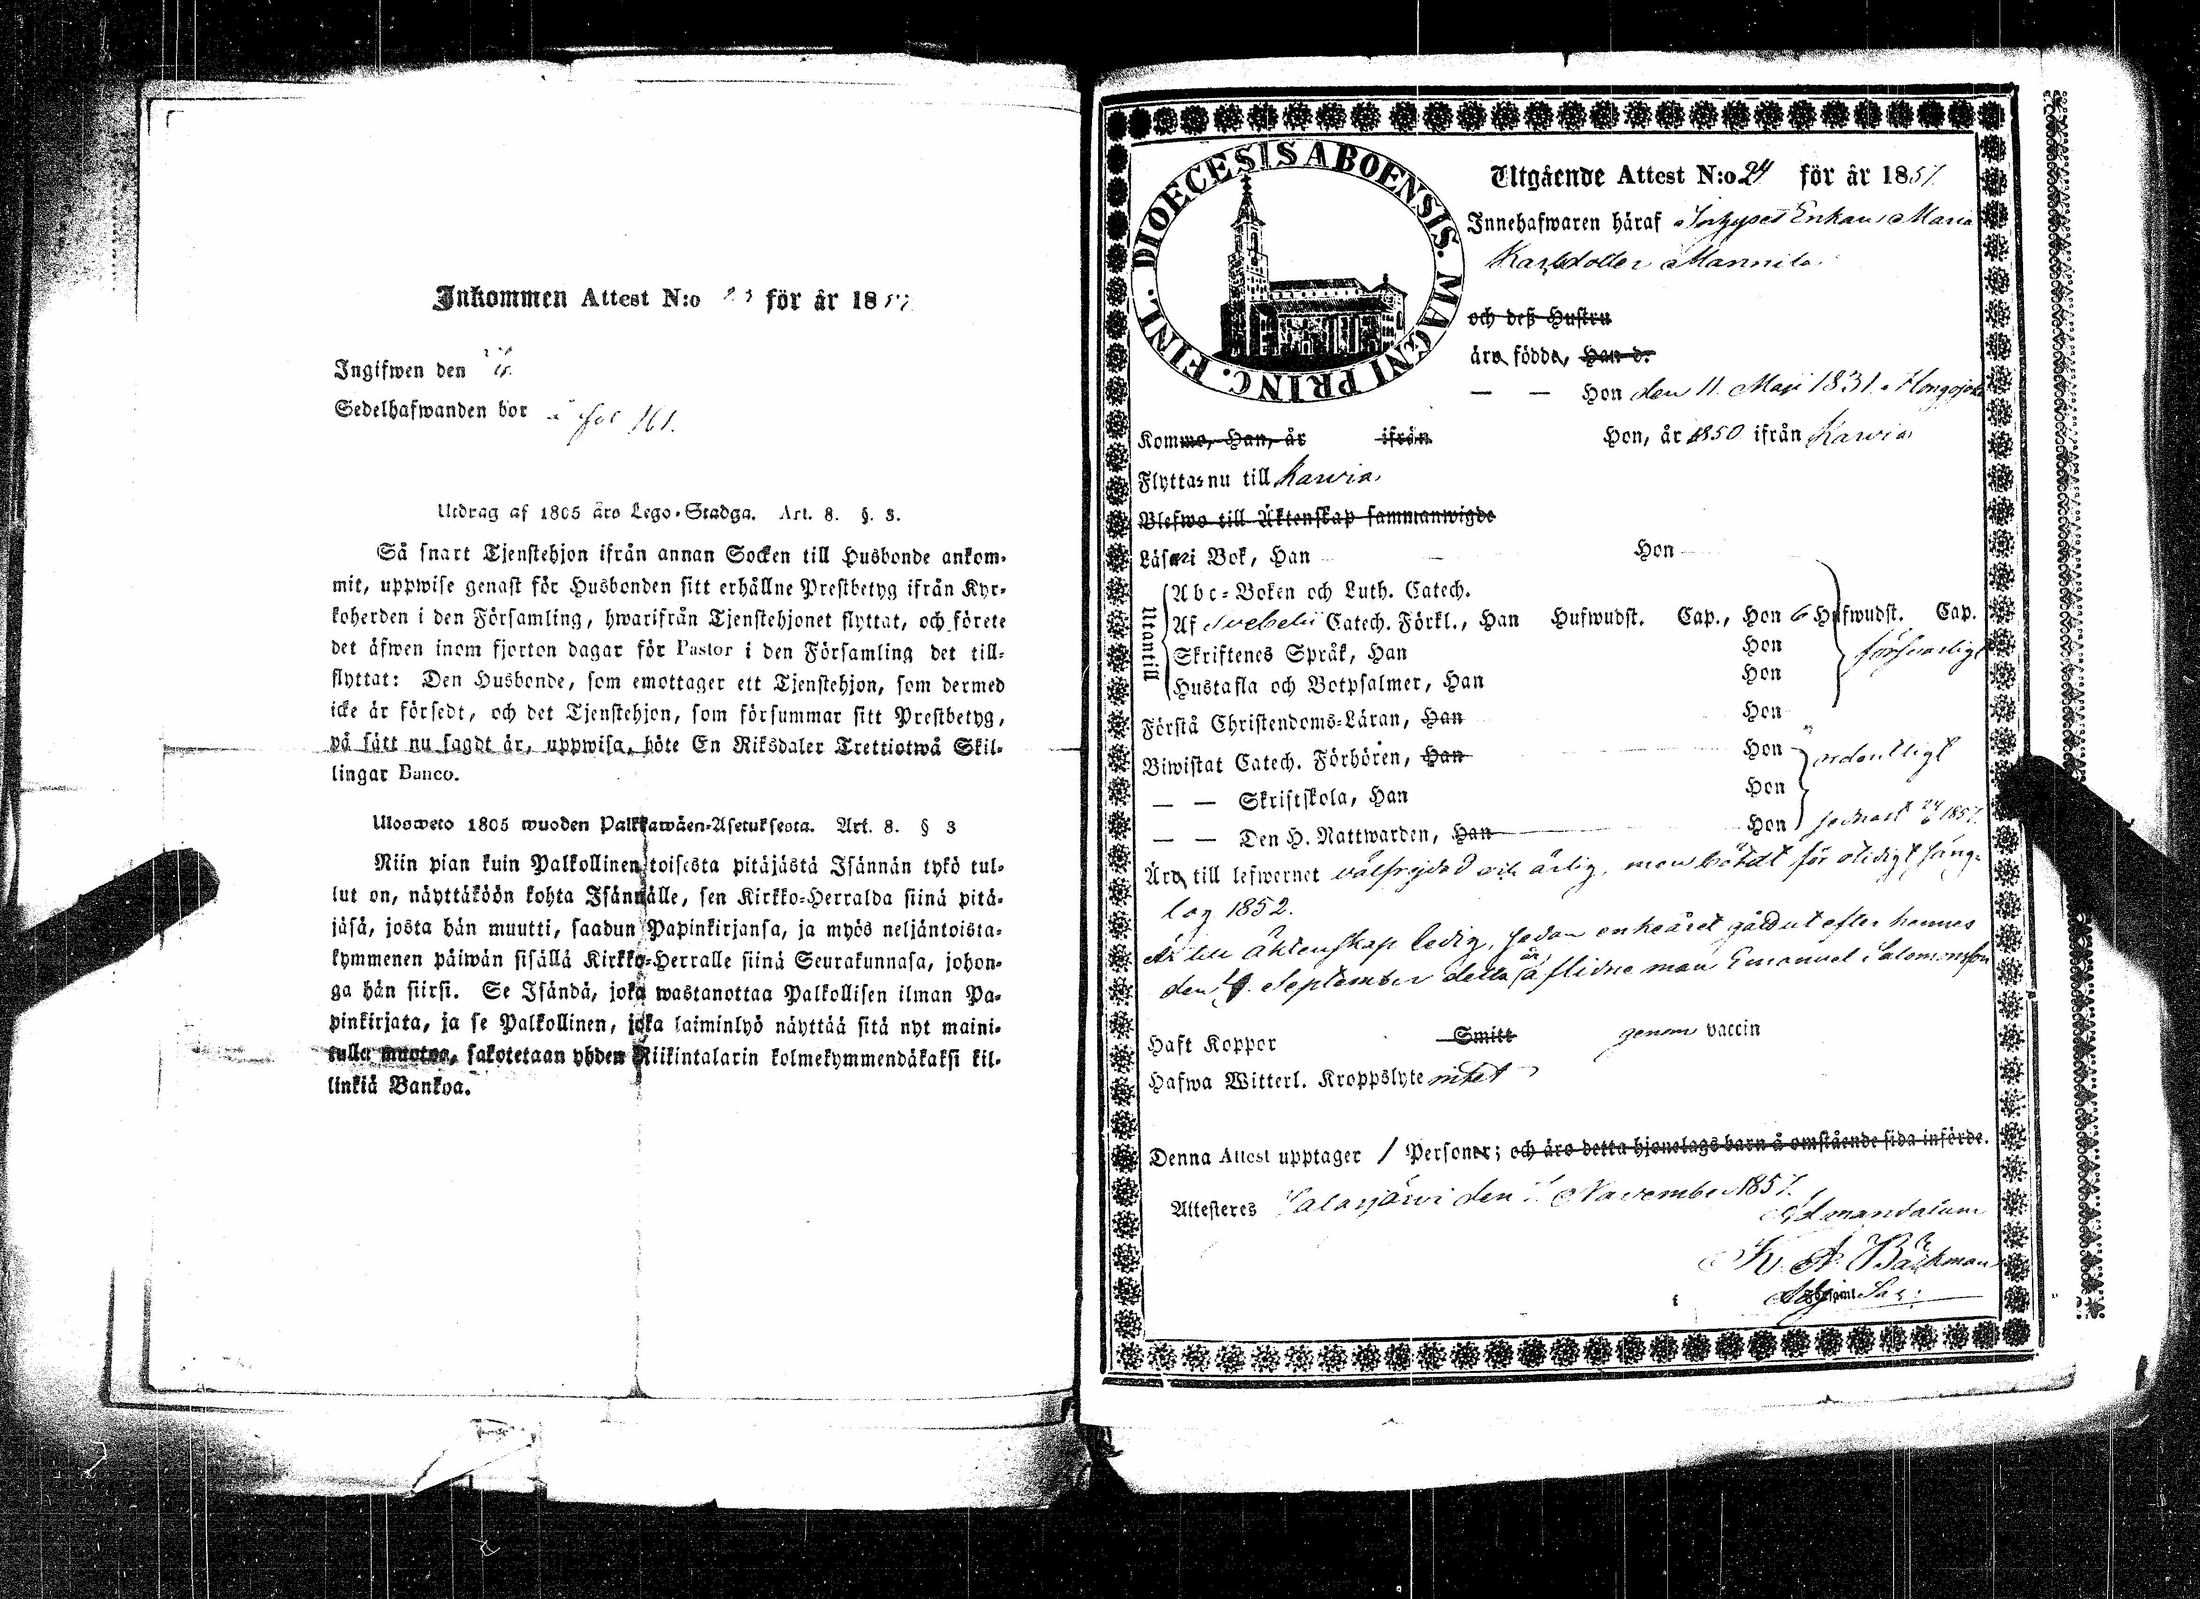 Inkommen Attest N:o 23 för år 1857
Ingifwen den
Sedelhafwanden bor å fol 161.
Utdrag af 1805 års Lego-Stadga. Art. 8. §. 3.
Så snart Tjenstehjon ifrån annan Socken till Husbonde ankom-
mit, uppwise genast för Husbonden sitt erhållne Prestbetyg ifrån Kyr-
koherden i den Församling, hwarifrån Tjenstehjonet flyttat, och förete
det äfwen inom fjorton dagar för Pastor i den Församling det till-
flyttat: Den Husbonde, som emottager ett Tjenstehjon, som dermed
icke är försedt, och det Tjenstehjon, som försummar sitt Prestbetyg,
på sätt nu sagdt är, uppwisa, böte En Riksdaler Trettiotwå Skil-
lingar Banco.
Ulosweto 1805 wuoden Palkkawäen-Asetuksesta. Art. 8. § 3
Niin pian kuin Palkollinen toisesta pitäjästä Isännän tykö tul-
lut on, näyttäköön kohta Isännälle, sen Kirkko-Herralda siinä pitä-
jäsä, josta hän muutti, saadun Papinkirjansa, ja myös neljäntoista-
kymmenen päiwän sisällä Kirkko-Herralle siinä Seurakunnasa, johon-
ga hän siirsi. Se Isändä, joka wastanottaa Palkollisen ilman Pa-
pinkirjata, ja se Palkollinen, joka laiminlyö näyttää sitä nyt maini-
tulla muotoa, sakotetaan yhden Riikintalarin kolmekymmendäkaksi kil-
linkiä Bankoa.
DIOECESIS ABOENSIS. MAGNI PRINC. FINL.
Utgående Attest N:o 24 för år 1857.
Innehafwaren häraf Enkan Maria
Karlsdotter Mannila
och deß Hustru
äro födde, Han d.
— — Hon den 11 Maji 1831 i Hongojoki
Komme, Han, år ifrån Hon, år 1850 ifrån Karvia
Flytta nu till Karvia
Blefwo till Äktenskap sammanwigde
Läsa i Bok, Han Hon
Utantill
Abc-Boken och Luth. Catech.
Af Svebelii Catech. Förkl., Han Hufwudst. Cap., Hon 6 Hufwudst. Cap.
Skriftenes Språk, Han Hon försvarligt
Hustafla och Botpsalmer, Han Hon
Förstå Christendoms-Läran, Han Hon
Biwistat Catech. Förhören, Han Hon ordentligt
— — Skriftskola, Han Hon
— — Den H. Nattwarden, Han Hon sednast 24/6 1857.
Äro till lefwernet välfrejdad och ärlig, men bötat för otidigt säng-
lag 1852.
Är till Äktenskap ledig, sedan enkeåret gådt ut efter hennes
den 19. September detta år aflidne man Emanuel Salomonsson
Haft Koppor Smitt genom vaccin
Hafwa Witterl. Kroppslyte intet
Denna Attest upptager 1 Personer; och äro detta hjonelags barn å omstående sida införde.
Attesteres Jalasjärvi den November 1857.
Ad mandatum
K. A. Bäckman